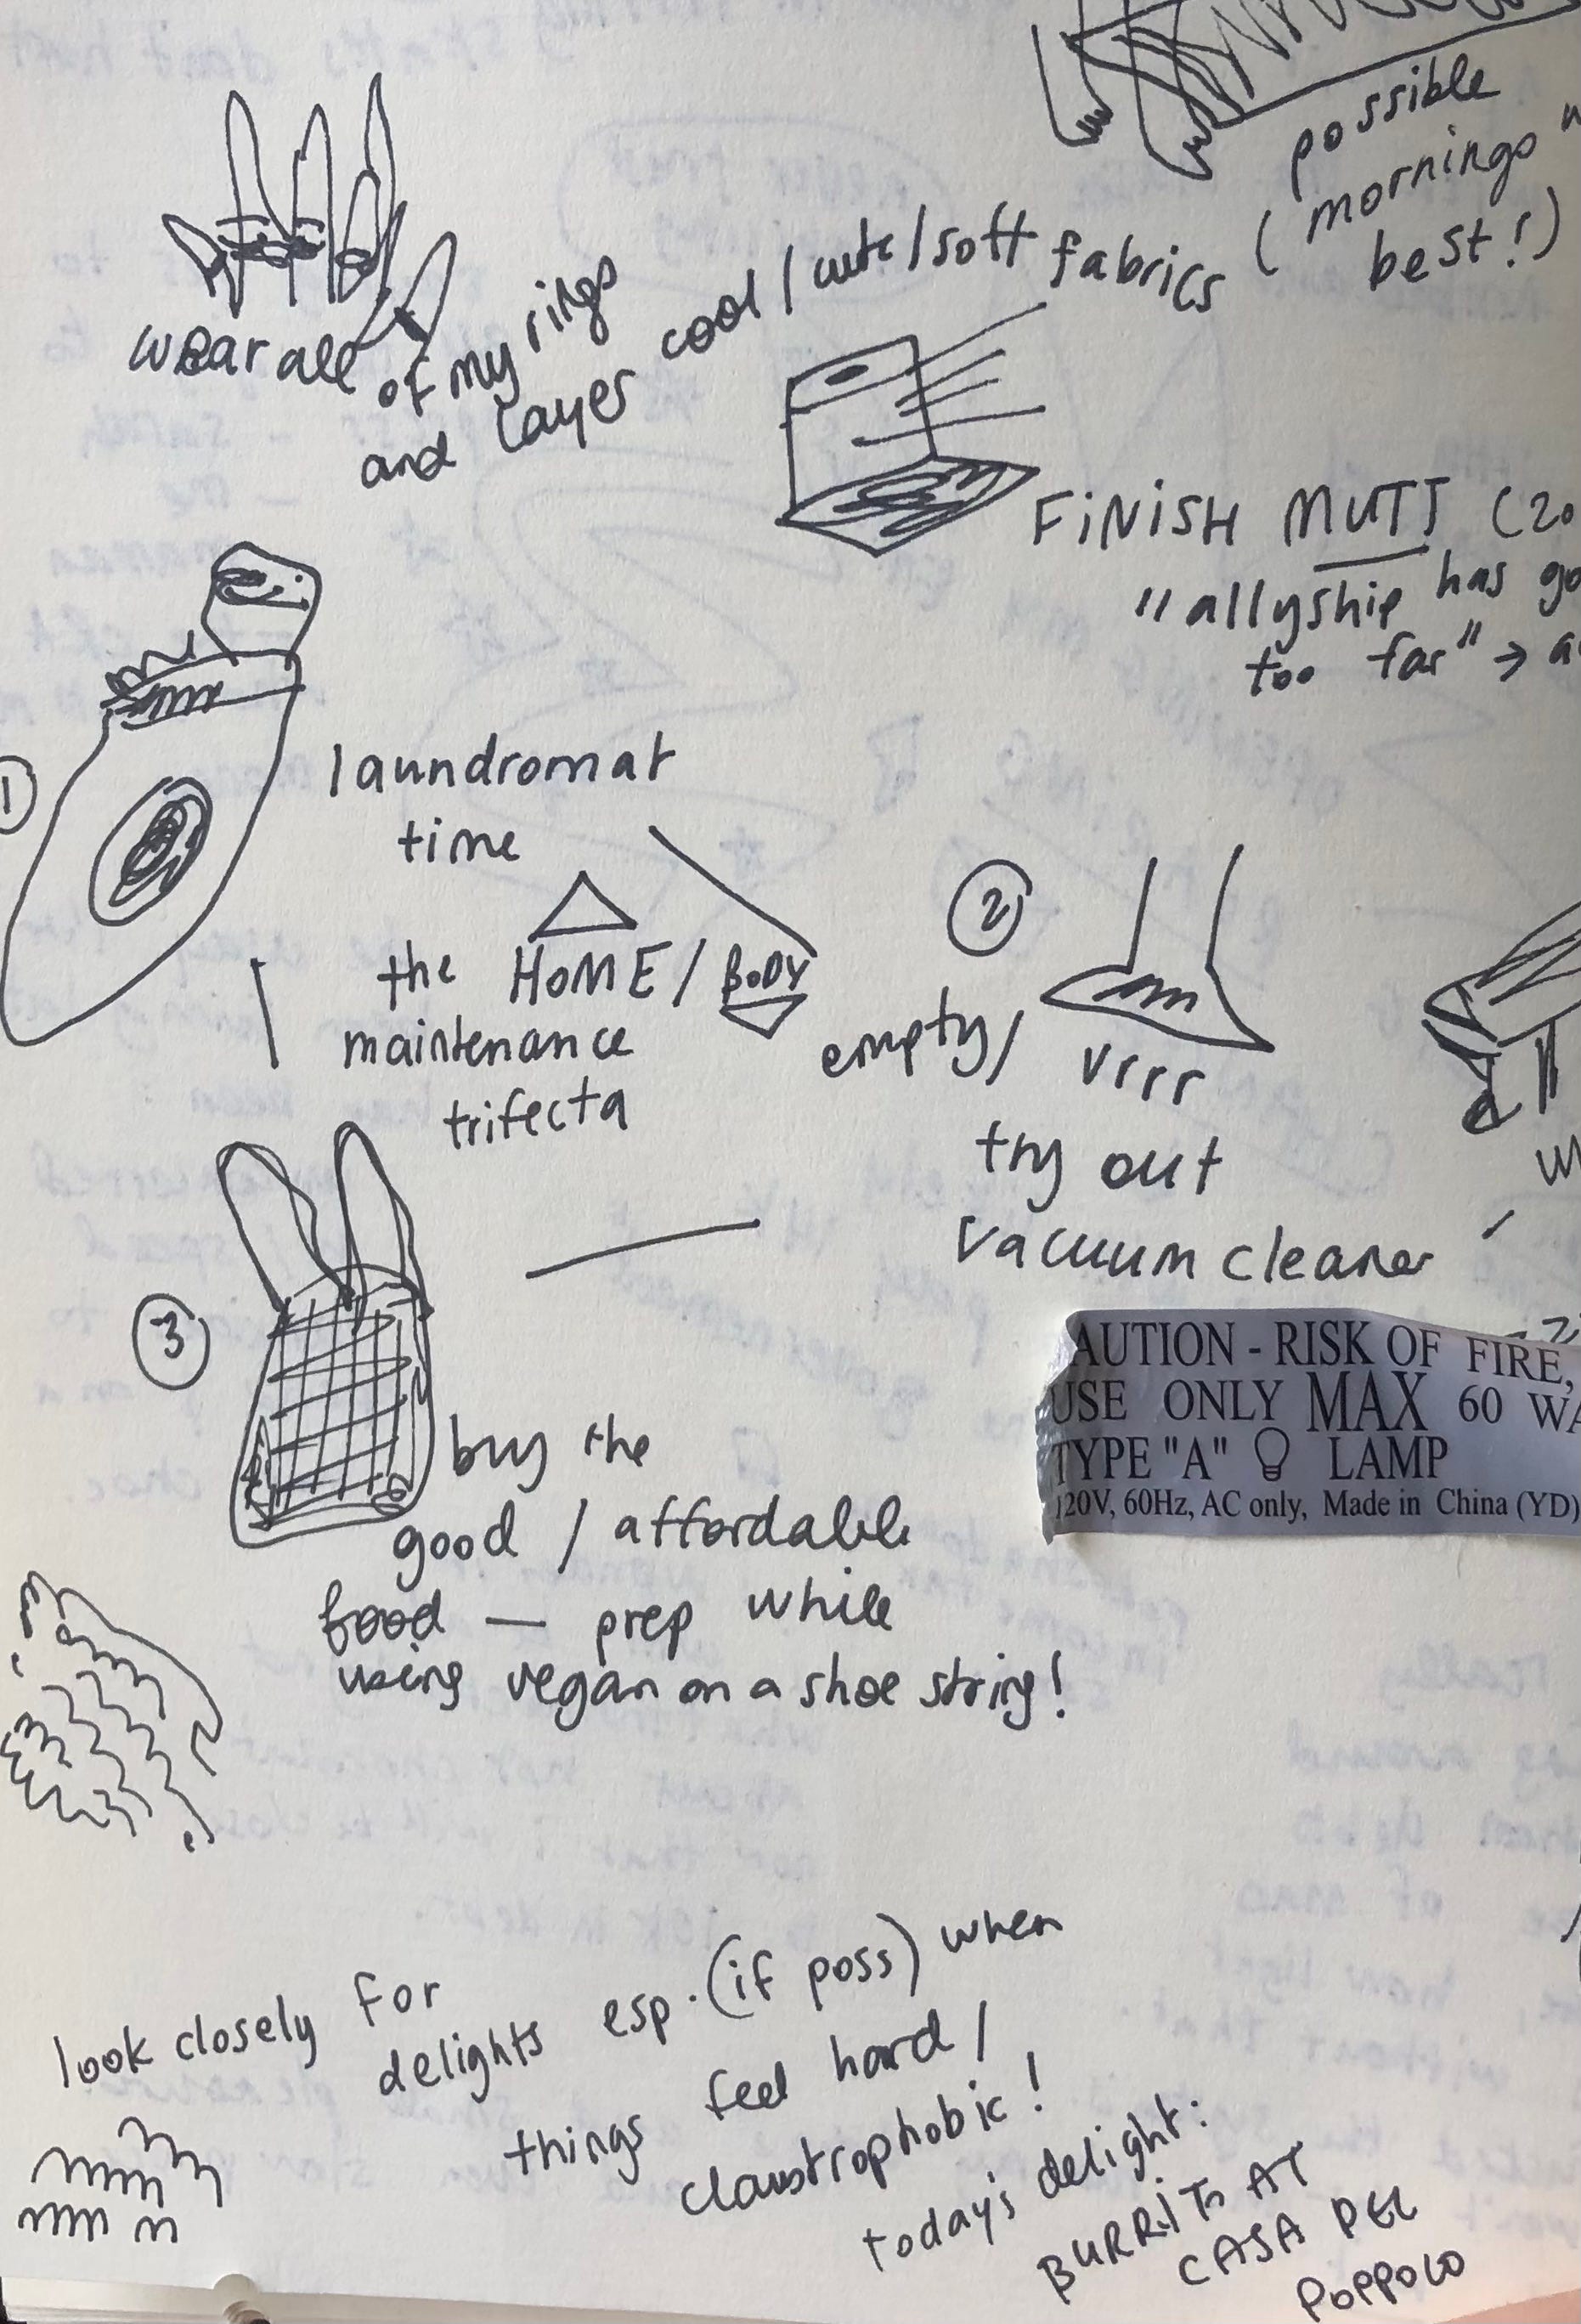 possible
(mornings
best!)
wear all of my rings
and layer cool/cute/soft fabrics
FINISH MUTT (20
"allyship has go
too far" → a
1
laundromat
time
the HOME/BODY
maintenance
trifecta
2
empty/ vrrr
try out
vacuum cleaner
3
buy the
good / affordable
food — prep while
using vegan on a shoe string!
AUTION - RISK OF FIRE,
USE ONLY MAX 60 WA
TYPE "A" LAMP
120V, 60Hz, AC only, Made in China (YD)
look closely for
delights esp. (if poss) when
things feel hard/
claustrophobic!
today's delight:
BURRITO AT
CASA DEL
POPPOLO